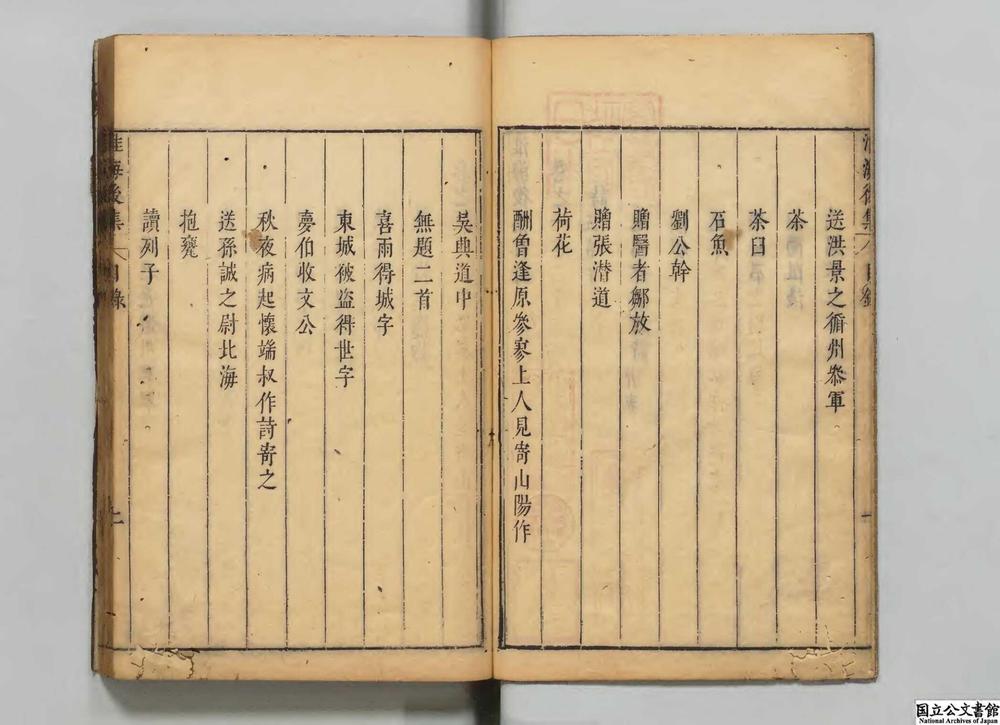 送洪景之循州叅軍
茶
茶臼
石魚
劉公幹
贈醫者鄒放
贈張潜道
荷花
酬曾逢原參寥上人見寄山陽作
吳興道中
無題二首
喜雨得城字
東城被盗得世字
夢伯收文公
秋夜病起懷端叔作詩寄之
送孫誠之尉北海
抱甕
讀列子
淮海後集
目錄
国立公文書館
National Archives of Japan